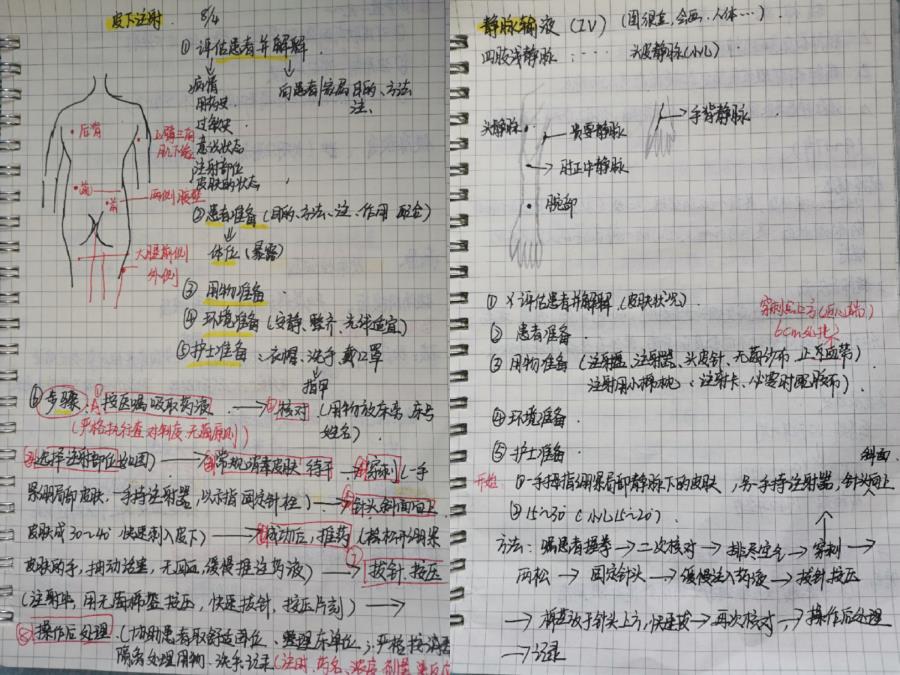 皮下注射 8/4
① 评估患者并解释
病情 向患者/家属目的、方法
用药史 注、
过敏史
意识状态
注射部位
皮肤的状态
后背
上臂三角肌下缘
两侧腹壁
大腿前侧
外侧
② 患者准备(目的、方法、注、作用 配合)
体位(暴露)
③ 用物准备
④ 环境准备(安静、整齐、光线适宜)
⑤ 护士准备:衣帽、洗手、戴口罩
指甲
⑥ 步骤:①按医嘱吸取药液 → ②核对(用物放床旁,床号
(严格执行查对制度、无菌原则) 姓名)
③选择注射部位(如图) → ④常规消毒皮肤 待干 → ⑤穿刺(一手
绷紧局部皮肤,一手持注射器,以示指固定针栓) → 针头斜面向上
皮肤成30~40° 快速刺入皮下) → ⑥成功后,推药(松开绷紧
皮肤的手,抽动活塞,无回血,缓慢推注药液) → ⑦拔针、按压
(注射毕,用无菌棉签按压,快速拔针,按压片刻) →
⑧操作后处理(协助患者取舒适体位、整理床单位;严格按消毒
隔离处理用物、洗手记录(注时、药名、浓度、剂量、
静脉输液(IV)(图很丑,会画,人体…)
四肢浅静脉:…… 头皮静脉(小儿)
头静脉 贵要静脉 手背静脉
肘正中静脉
腕部
① 评估患者并解释(皮肤状况) 穿刺点上方(近心端)
② 患者准备 6cm处扎
③ 用物准备(注射器、头皮针、无菌纱布、止血带)
注射用小棉枕:注射卡、必要时配胶布)
④ 环境准备
⑤ 护士准备 斜面
开始 ①一手拇指绷紧局部静脉下的皮肤,另一手持注射器,针头向上
② 15~30°(小儿15~20°)
方法:嘱患者握拳 → 二次核对 → 排尽空气 → 穿刺 →
两松 → 固定针头 → 缓慢注入药液 → 拔针、按压
→ 棉签放于针头上方,快速拔 → 再次核对 → 操作后处理
→ 记录